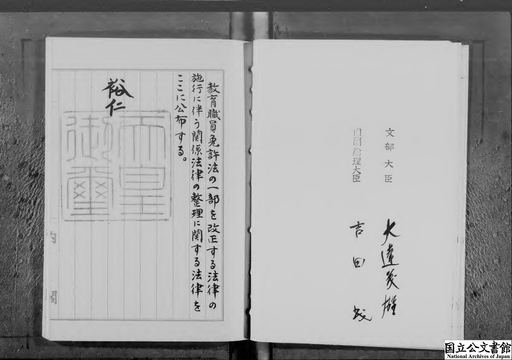 教育職員免許法の一部を改正する法律の
施行に伴う関係法律の整理に関する法律を
ここに公布する。
裕仁
天皇
御璽
文部大臣
大達茂雄
内閣総理大臣
吉田茂
国立公文書館
National Archives of Japan